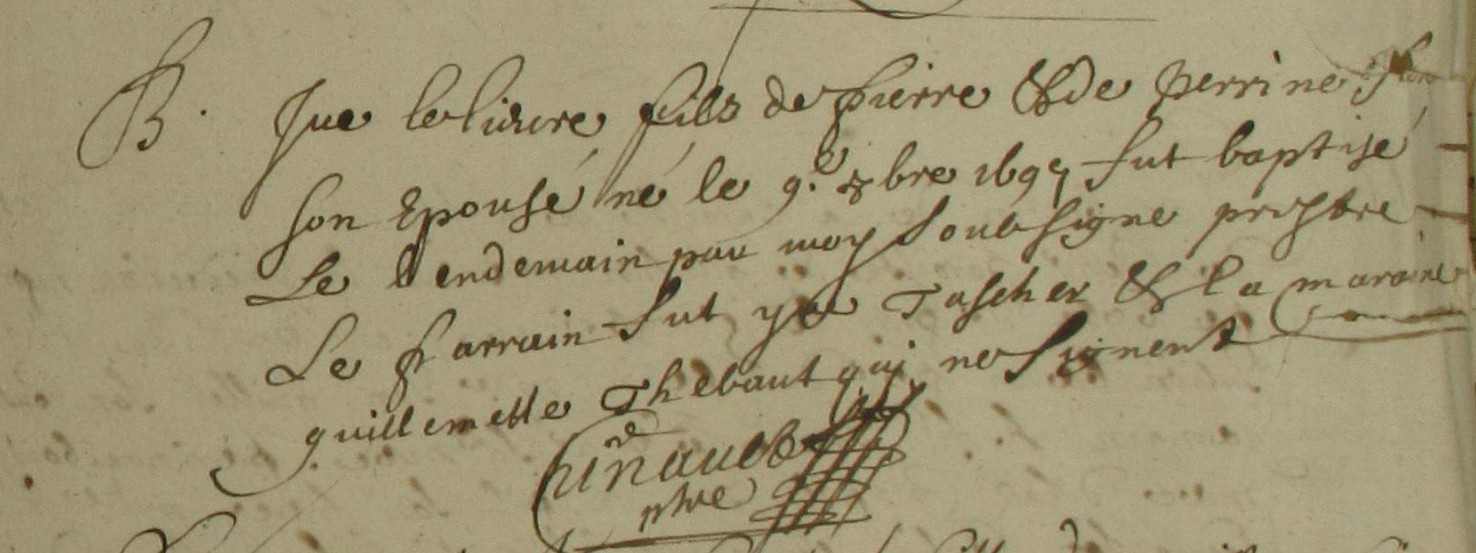 B. Jue le lieure fils de pierre & de perrine
son Epousé né le 9.e xbre 1697 fut baptisé
Le lendemain par moy Soubsigne prestre
Le parrain fut yve Tascher & la maraine
guillemette Thebaut qui ne signent
ptre